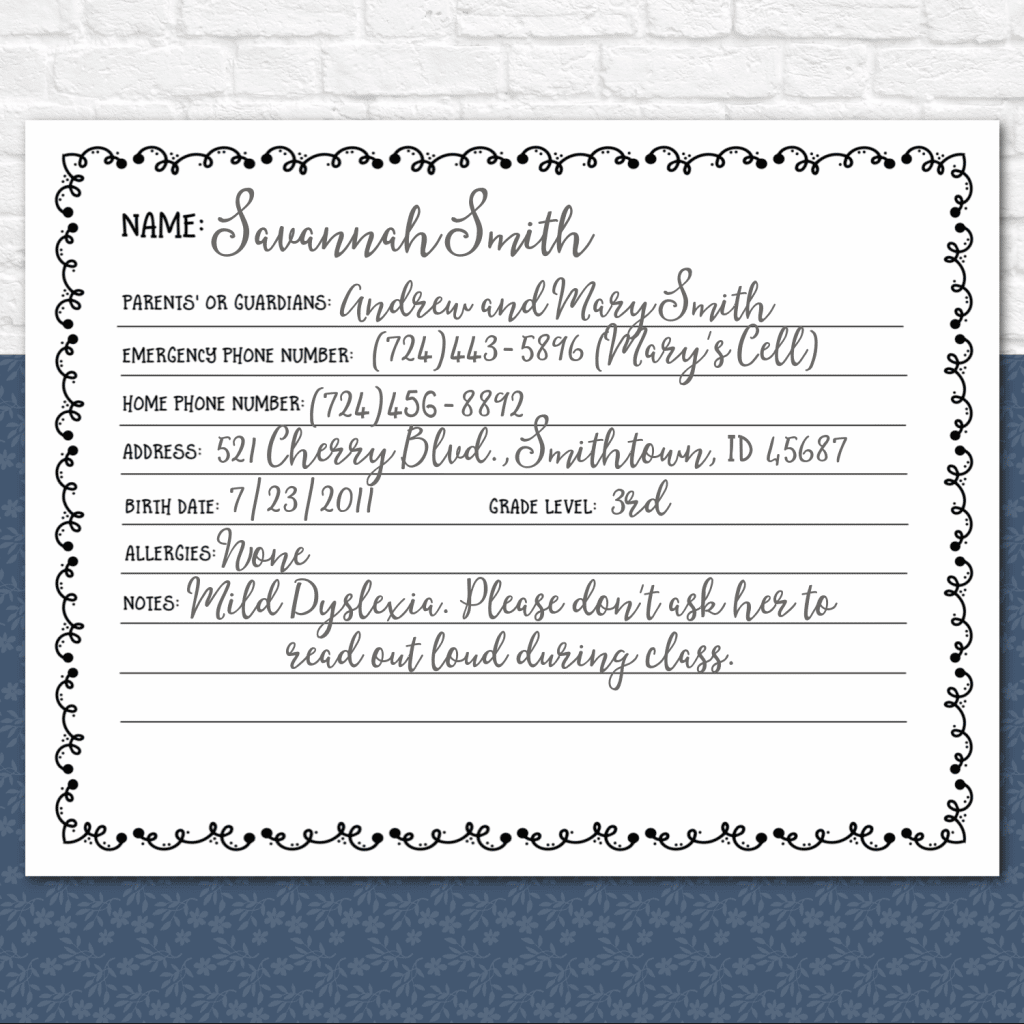 NAME: Savannah Smith
PARENTS' OR GUARDIANS: Andrew and Mary Smith
EMERGENCY PHONE NUMBER: (724)443-5896 (Mary's Cell)
HOME PHONE NUMBER: (724)456-8892
ADDRESS: 521 Cherry Blvd., Smithtown, ID 45687
BIRTH DATE: 7/23/2011 GRADE LEVEL: 3rd
ALLERGIES: None
NOTES: Mild Dyslexia. Please don't ask her to
read out loud during class.